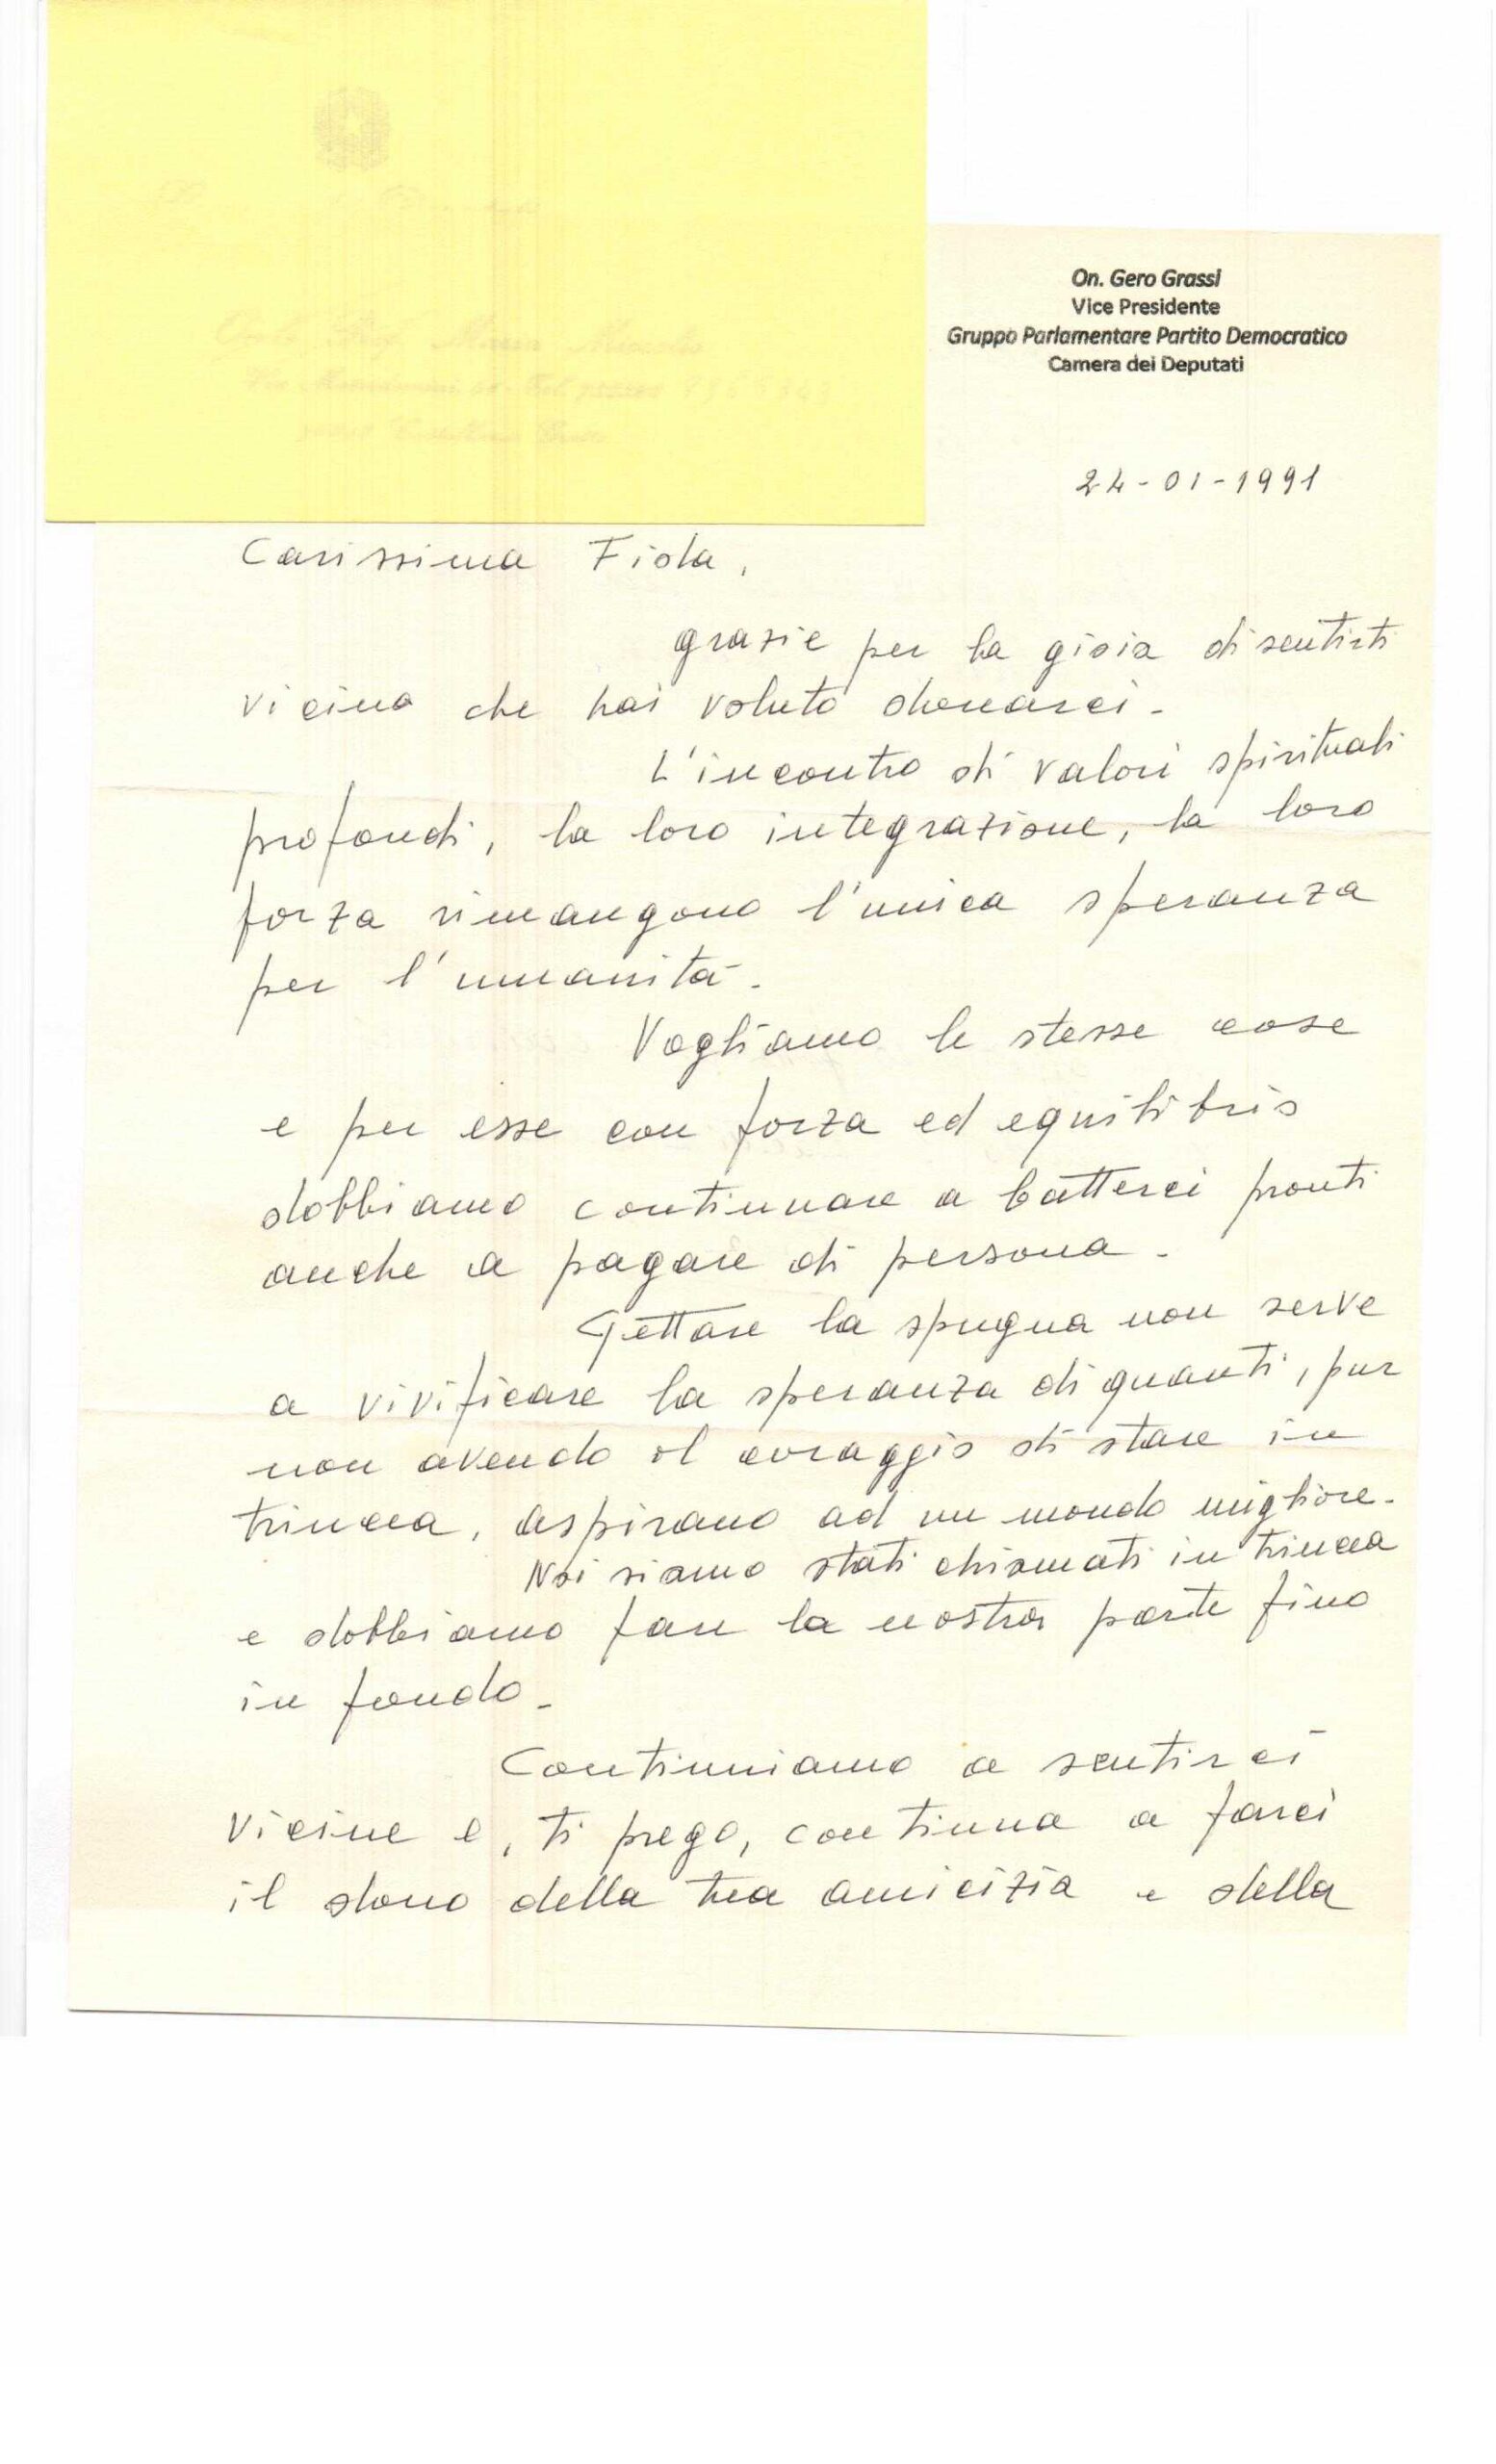 On. Gero Grassi
Vice Presidente
Gruppo Parlamentare Partito Democratico
Camera dei Deputati
24-01-1991
Carissima Fiola,
grazie per la gioia di sentirti
vicina che hai voluto donarci.
L'incontro di valori spirituali
profondi, la loro integrazione, la loro
forza rimangono l'unica speranza
per l'umanità.
Vogliamo le stesse cose
e per esse con forza ed equilibrio
dobbiamo continuare a batterci pronti
anche a pagare di persona.
Gettare la spugna non serve
a vivificare la speranza di quanti, pur
non avendo il coraggio di stare in
trincea, aspirano ad un mondo migliore.
Noi siamo stati chiamati in trincea
e dobbiamo fare la nostra parte fino
in fondo.
Continuiamo a sentirci
vicine e, ti prego, continua a farci
il dono della tua amicizia e della